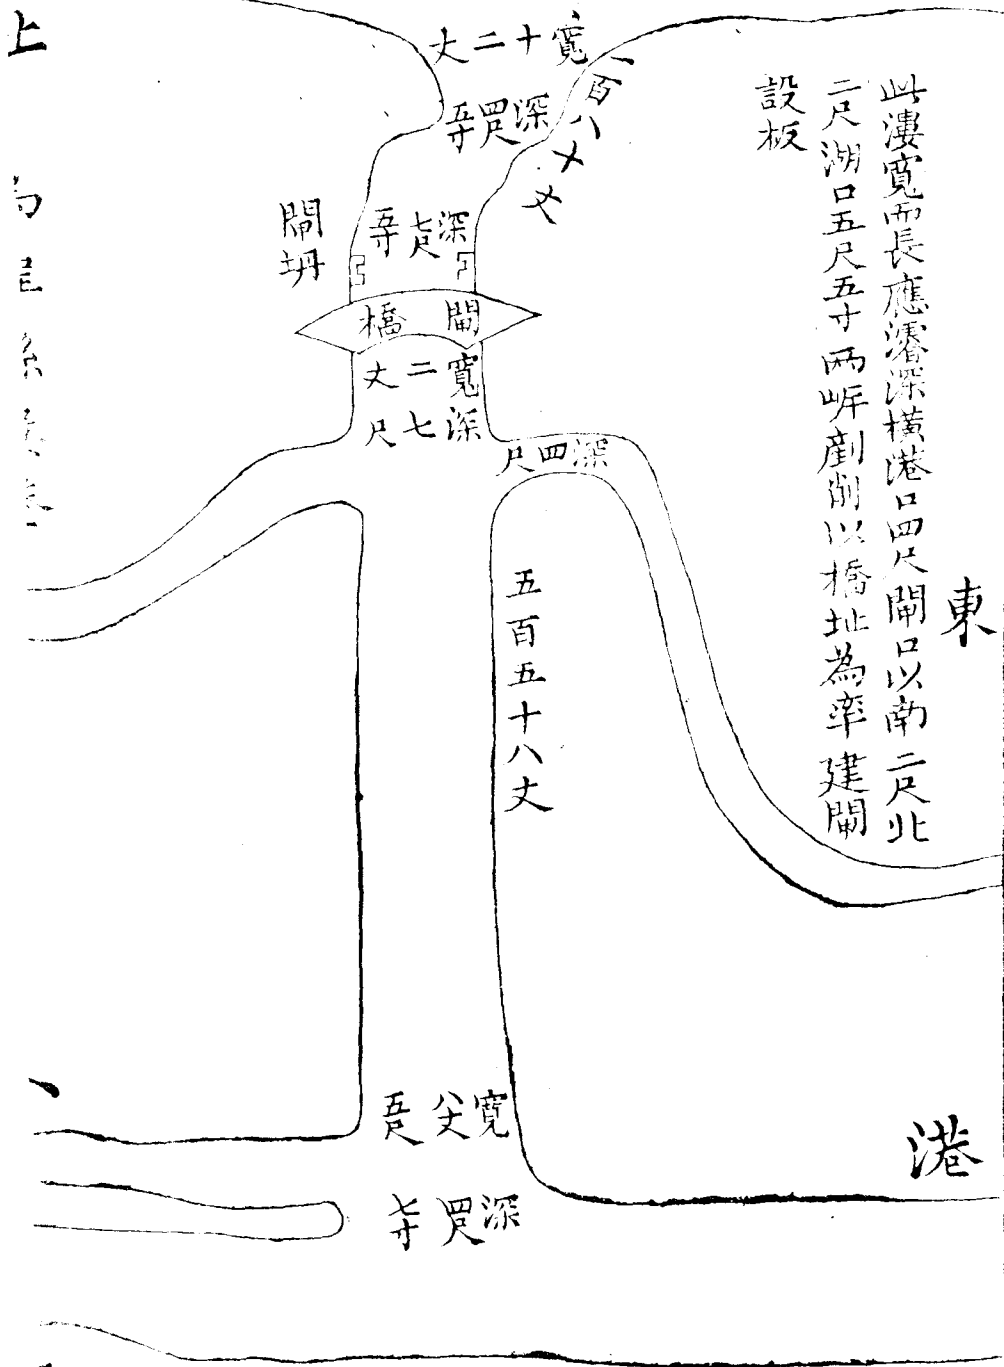 此漊寬而長應濬深橫港口四尺閘口以南二尺北
二尺湖口五尺五寸兩岸剷削以橋址為率建閘
設板
東
港
寬十二丈
一百八十丈
深四尺五寸
深七尺五寸
閘坍
閘橋
寬二丈
深七尺
深四尺
五百五十八丈
寬八丈五尺
深四尺七寸
上